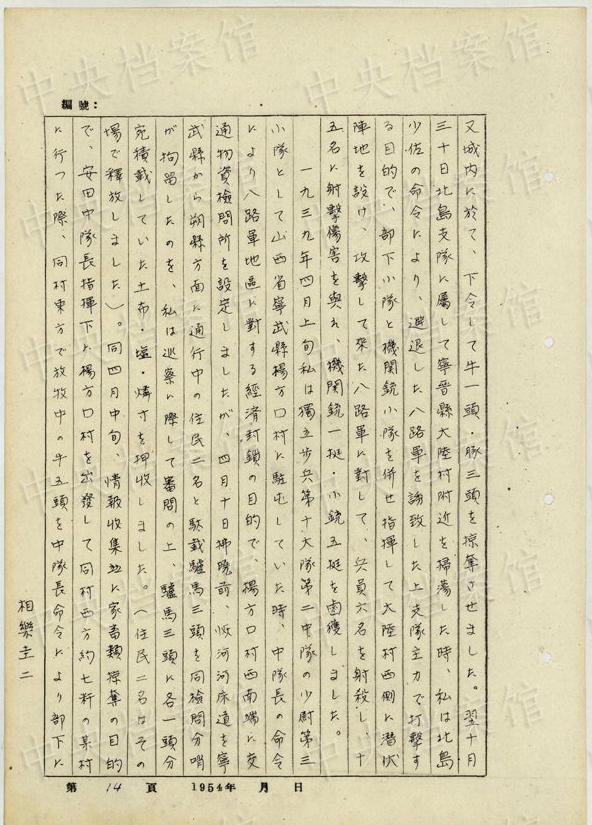 編號：
又城内に於て、下令して牛一頭・豚三頭を掠奪させました。翌十月
三十日北島支隊に屬して寧晋縣大陸村附近を掃蕩した時、私は北島
少佐の命令により、避退した八路軍を誘致した上支隊主力で打撃す
る目的で、部下小隊と機関銃小隊を併せ指揮して大陸村西側に潜伏
陣地を設け、攻撃して來た八路軍に對して、兵員六名を射殺し、十
五名に射撃傷害を與れ、機関銃一挺・小銃五挺を鹵獲しました。
一九三九年四月上旬私は獨立歩兵第十大隊第二中隊の少尉第三
小隊として山西省寧武縣楊方口村に駐屯していた時、中隊長の命令
により八路軍地區に對する經濟封鎖の目的で、楊方口村西南端に交
通物資檢問所を設定しましたが、四月十日拂曉前、恢河河床道を寧
武縣から朔縣方面に通行中の住民二名と駄載驢馬三頭を同檢問分哨
が拘留したのを、私は巡察に際して審問の上、驢馬三頭に各一頭分
宛積載していた土布・塩・燐寸を押收しました。（住民二名はその
場で釋放しました）。同四月中旬、情報收集並に家畜類掠奪の目的
で、安田中隊長指揮下に楊方口村を出發して同村西方約七粁の某村
に行つた際、同村東方で放牧中の牛五頭を中隊長命令により部下に
相樂圭二
第 14 頁 1954年 月 日
中央档案馆